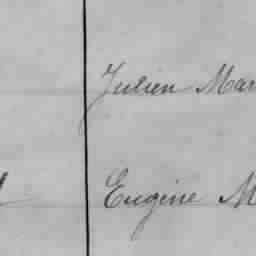 Julien Mar
Eugène M